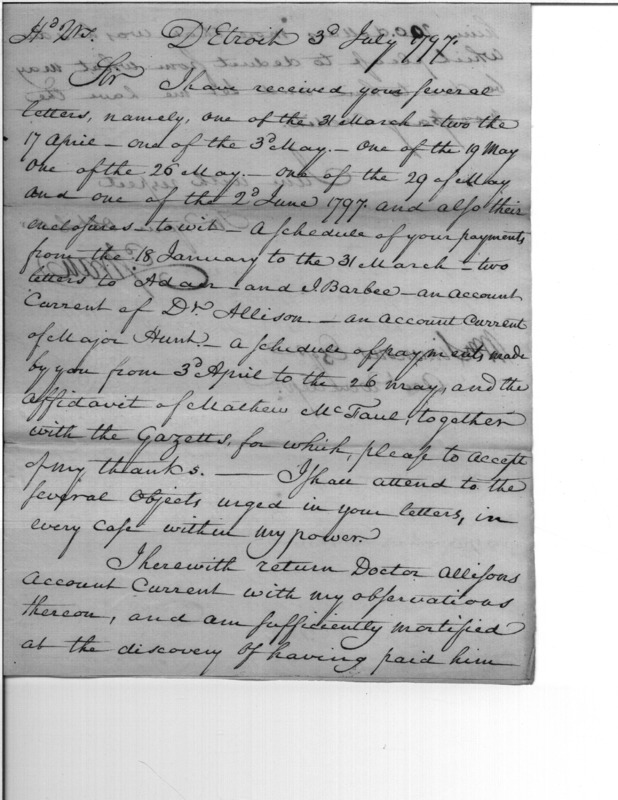 Hd Qrs. D'Etroit 3d July 1797.
Sir I have received your several
letters, namely, one of the 31 March – two the
17 April – one of the 3d May. – one of the 19 May
one of the 26 May. – one of the 29 of May
and one of the 2d June 1797. and also their
enclosures – to wit – a schedule of your payments
from the 18 January to the 31 March – two
letters to Adair and J. Barbee – an account
Current of Dr. Allison. – an account Current
of Major Hunt. – a schedule of payments made
by you from 3d April to the 26 may, and the
affidavit of Mathew McFaul, together
with the Gazetts, for which, please to accept
of my thanks. — I shall attend to the
several objects urged in your letters, in
every case within my power.
I herewith return Doctor allisons
account Current with my observations
thereon, and am sufficiently mortified
at the discovery of having paid him